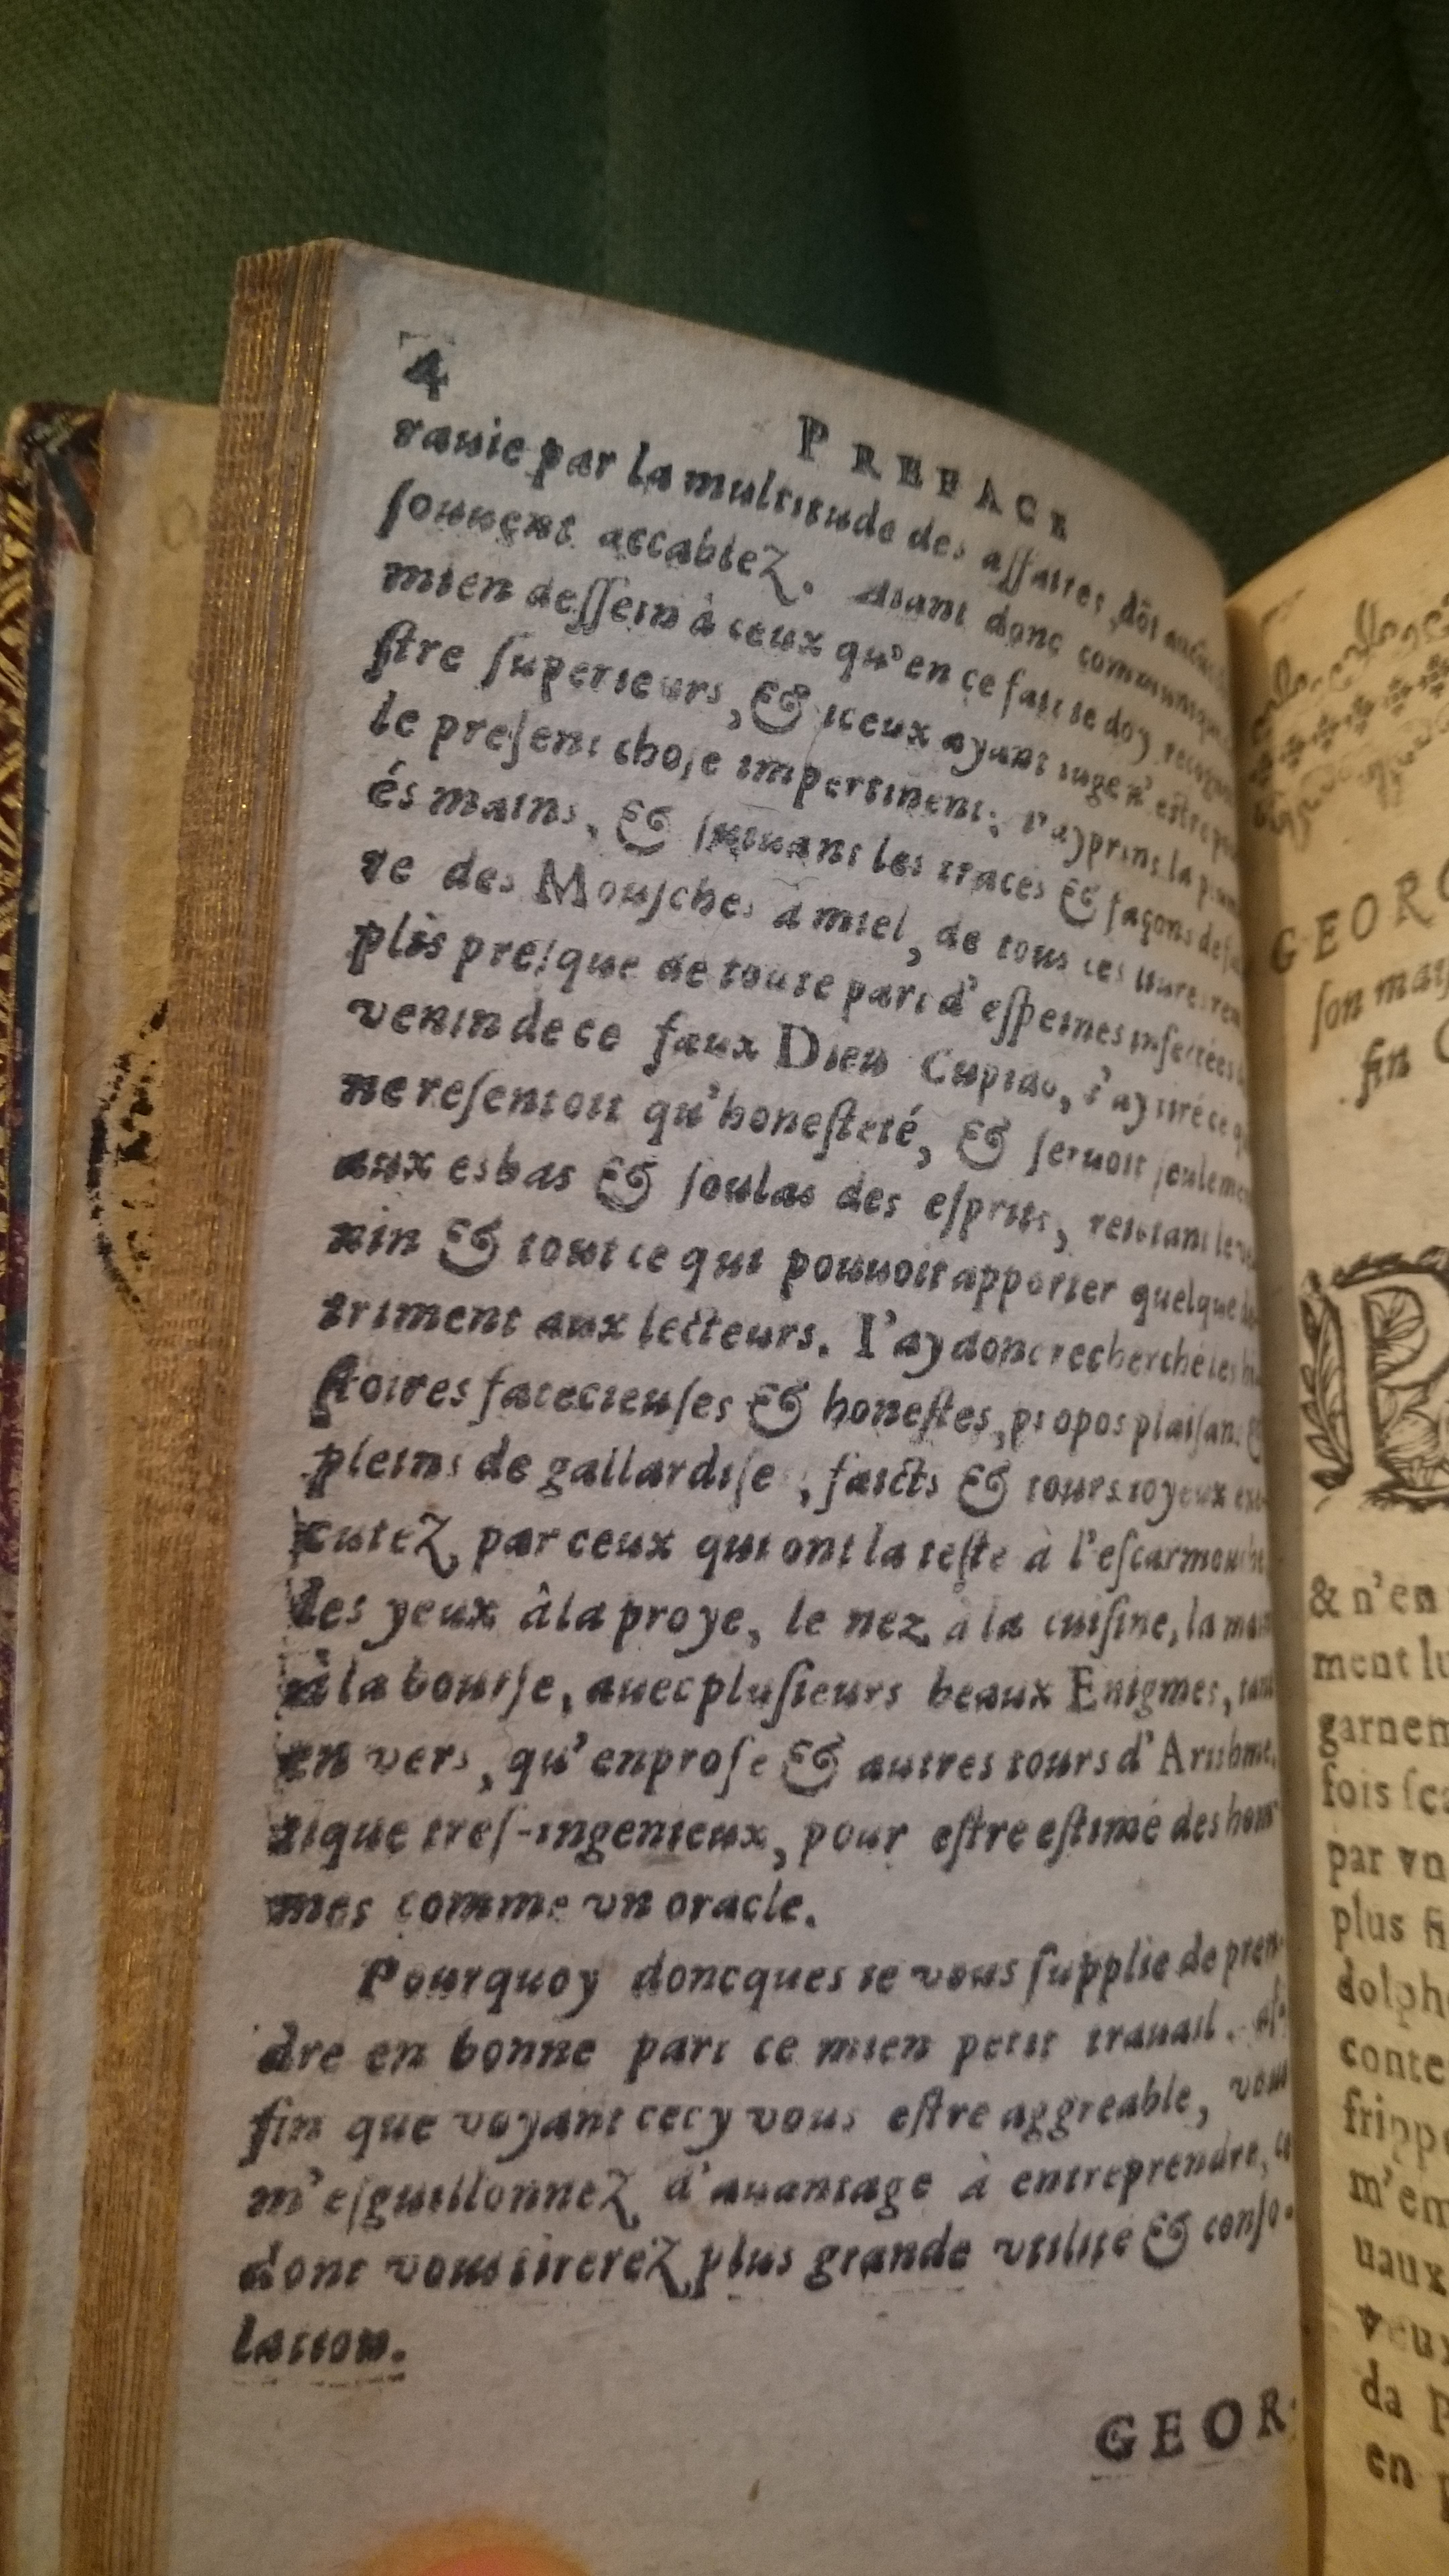 4
PREFACE
rauie par la multitude des affaires, dõt
souuent accablez. Aiant donc
mien dessein à ceux qu'en ce fait ie doy
stre superieurs, & iceux ayant iugé n'estre
le present chose impertinent; i'ay prins la
és mains, & suiuant les traces & façons de
re des Mousches à miel, de tous ces liures
plis presque de toute part d'espeines infectées
venin de ce faux Dieu Cupido, i'ay tiré ce
ne resentoit qu'honesteté, & seruoit seulement
aux esbas & soulas des esprits,
nin & tout ce qui pouuoit apporter quelque
triment aux lecteurs. I'ay donc recherché les hi
stoires facecieuses & honestes, propos plaisans &
pleins de gaillardise, faicts & tours ioyeux
cutez par ceux qui ont la teste à l'escarmouche
les yeux â la proye, le nez à la cuisine, la main
à la bourse, auec plusieurs beaux Enigmes, tant
en vers, qu'en prose & autres tours d'Arithme.
tique tres-ingenieux, pour estre estimé des hom
mes comme vn oracle.
Pourquoy doncques ie vous supplie de pren-
dre en bonne part ce mien petit trauail. af-
fin que voyant cecy vous estre aggreable, vous
m'esguillonnez d'auantage à entreprendre, ce
dont vous tirerez plus grande vtilité & conso-
lation.
GEOR-
GEORG
son
fin
& n'en
ment
garnem
fois
par vn
plus
dolph
conte
fripp
m'em
uaux
veux
da
en